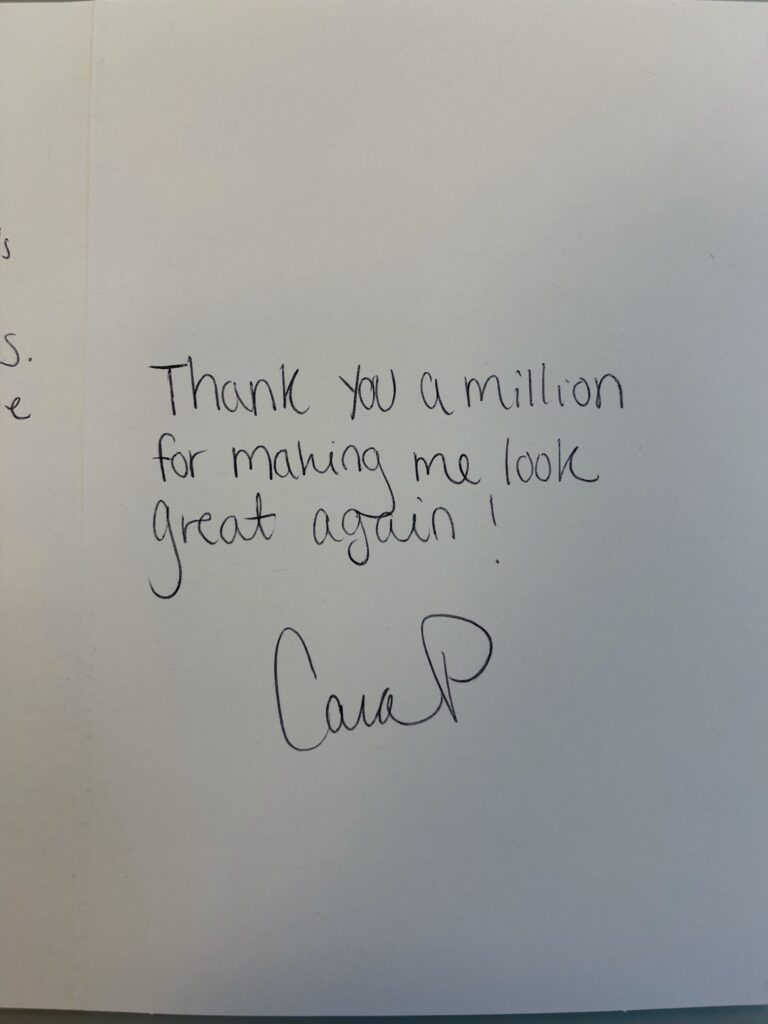 's
s.
e
Thank you a million
for making me look
great again!
Cara P